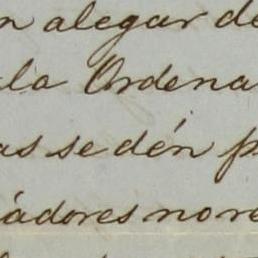 n alegar de
la Ordena
as se dén p
iadores no re